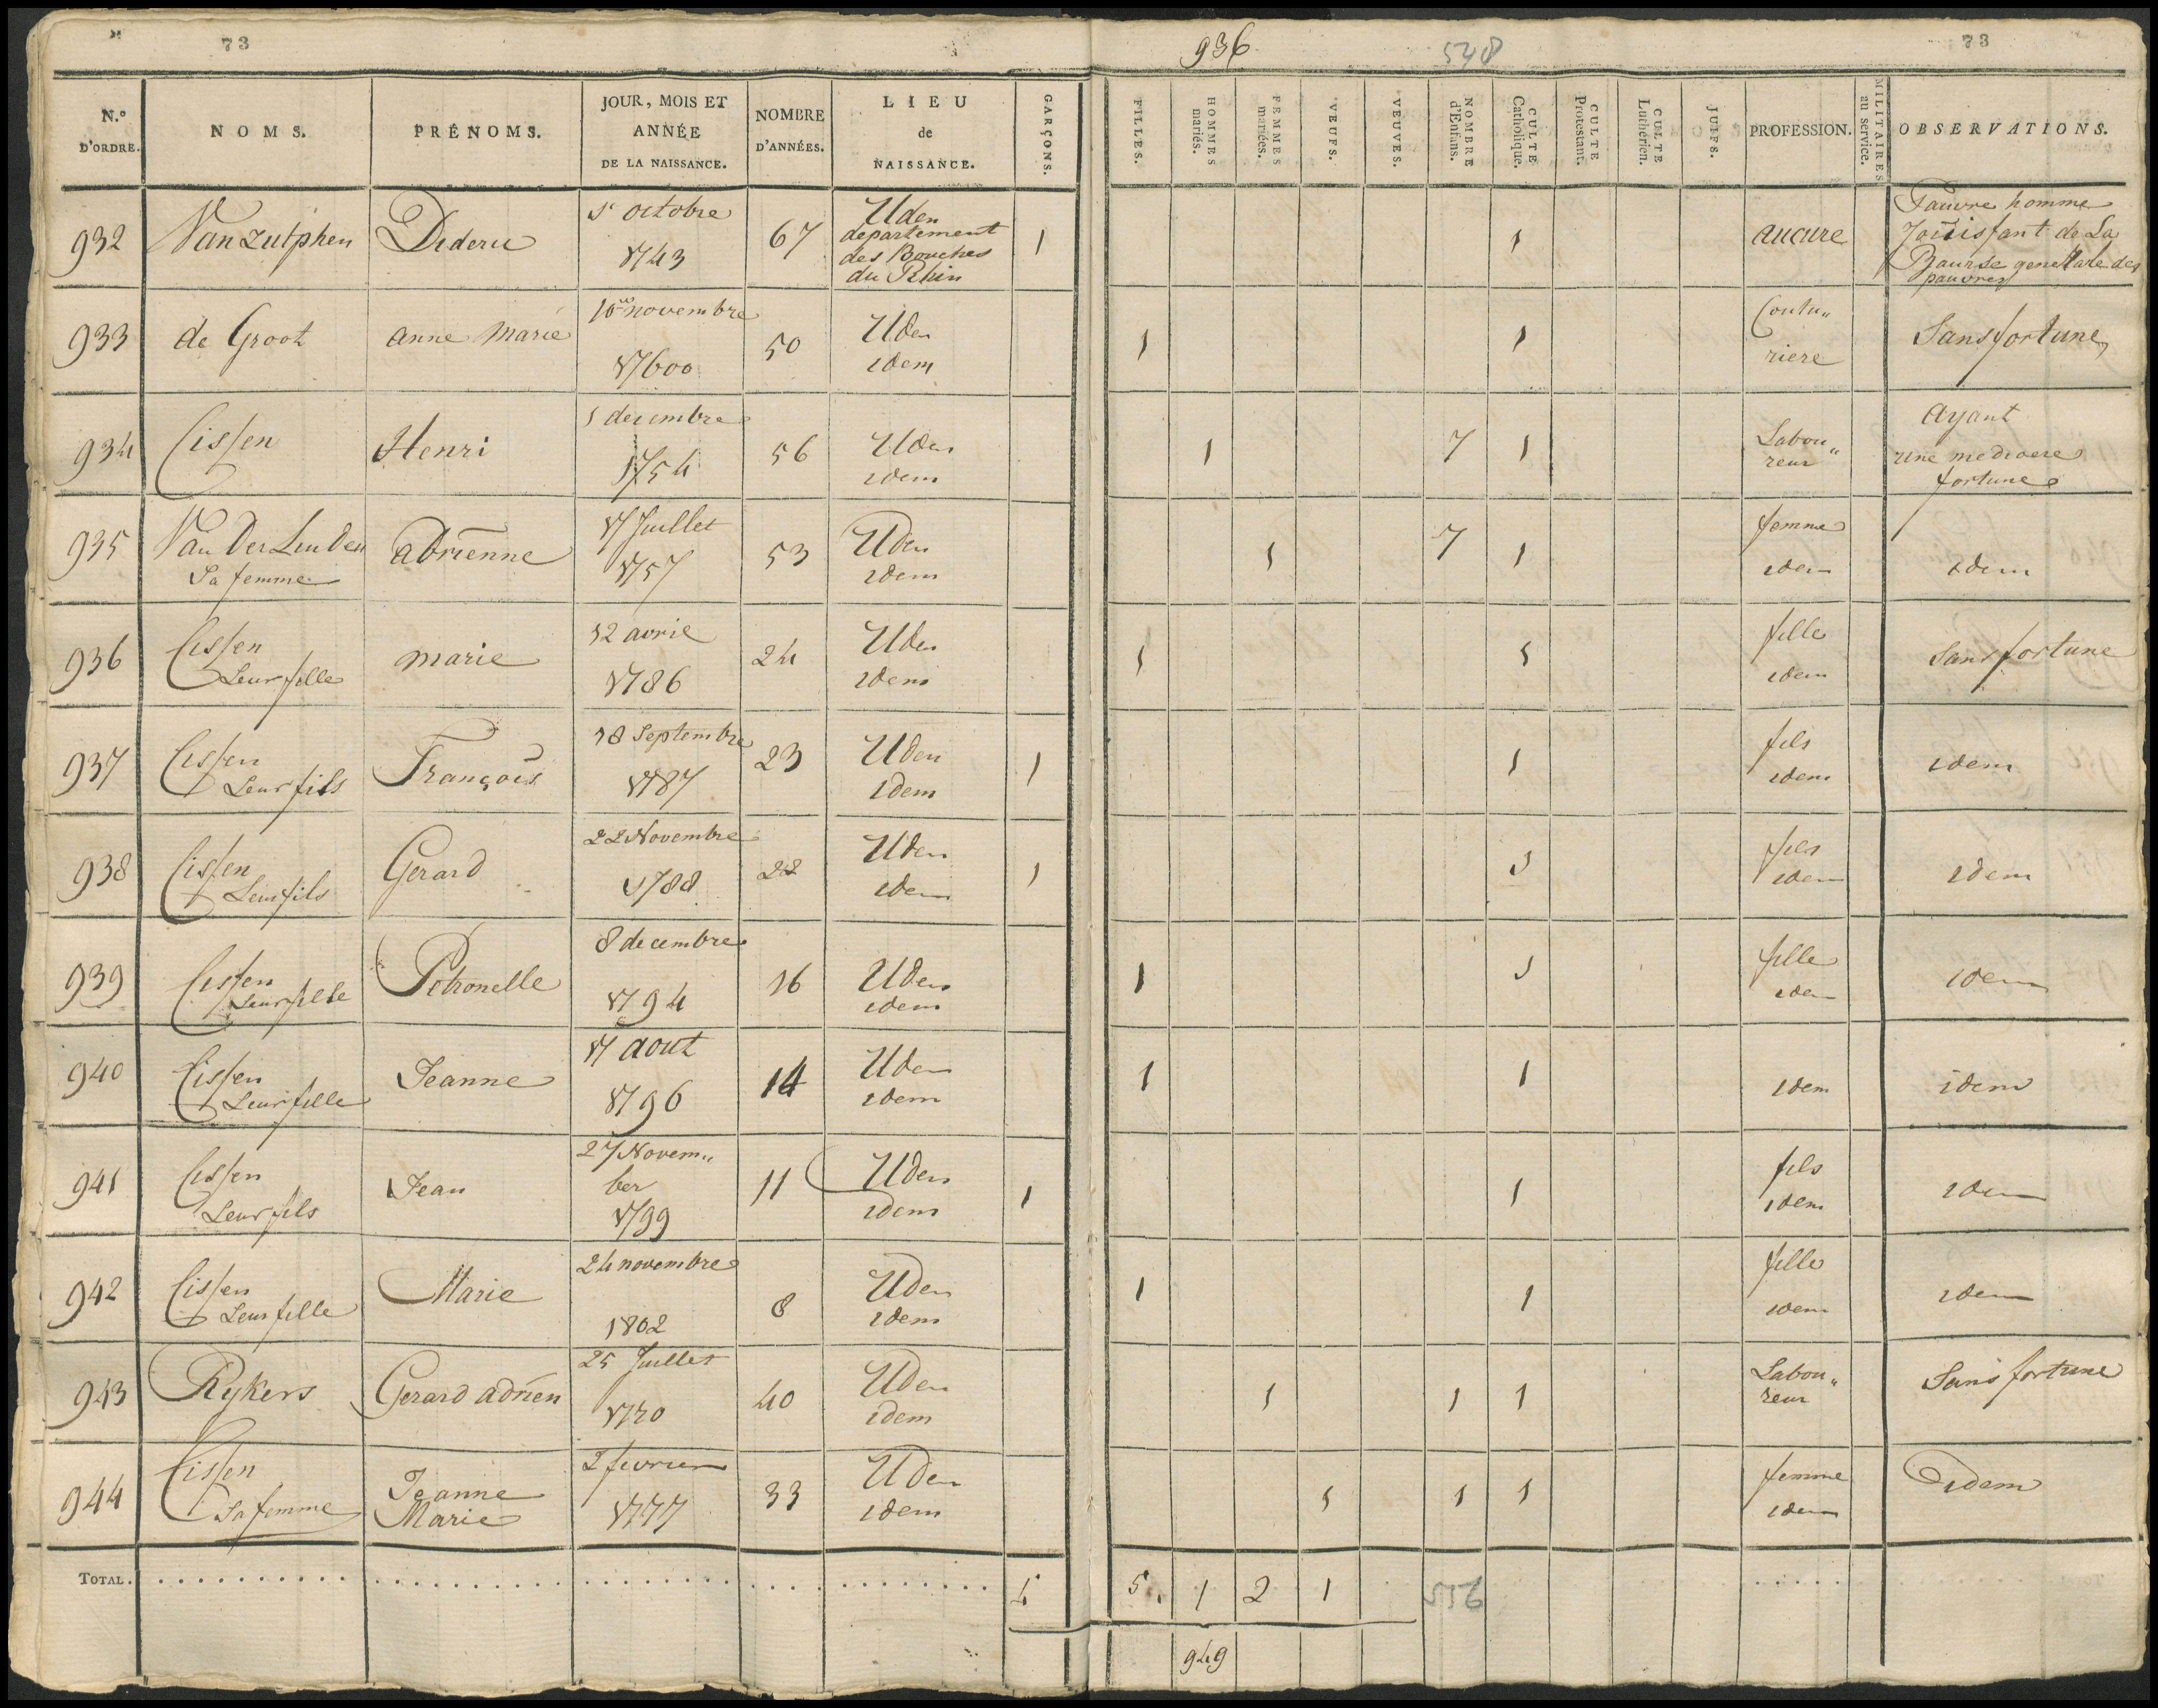 73
936
548
73
N.º D'ORDRE. NOMS. PRÉNOMS. JOUR, MOIS ET ANNÉE DE LA NAISSANCE. NOMBRE D'ANNÉES. LIEU de NAISSANCE. GARÇONS. FILLES. HOMMES mariés. FEMMES mariées. VEUFS. VEUVES. NOMBRE d'Enfans. CULTE Catholique. CULTE Protestant. CULTE Luthérien. JUIFS. PROFESSION. MILITAIRES au service. OBSERVATIONS.
932 Van Zutphen Dideric 1 octobre 1743 67 Uden departement des Bouches du Rhin 1 1 aucune Pauvre homme Jouissant de La Bourse generale des pauvres
933 de Groot anne Marie 10 novembre 17600 50 Uden idem 1 1 Coutu„ riere Sans fortune
934 Cissen Henri 1 decembre 1754 56 Uden idem 1 7 1 Labou„ reur ayant une mediocre fortune
935 Van Der Linden Sa femme adrienne 17 Juillet 1757 53 Uden idem 1 7 1 femme idem idem
936 Cissen Leur fille marie 12 avril 1786 24 Uden idem 1 1 fille idem Sans fortune
937 Cissen Leur fils François 18 Septembre 1787 23 Uden idem 1 1 fils idem idem
938 Cissen Leur fils Gerard 22 Novembre 1788 22 Uden idem 1 1 fils idem idem
939 Cissen Leur fille Petronelle 8 decembre 1794 16 Uden idem 1 1 fille idem idem
940 Cissen Leur fille Jeanne 17 aout 1796 14 Uden idem 1 1 idem idem
941 Cissen Leur fils Jean 27 Novem„ ber 1799 11 Uden idem 1 1 fils idem idem
942 Cissen Leur fille Marie 24 novembre 1802 8 Uden idem 1 1 fille idem idem
943 Rykers Gerard adrien 25 Juillet 1770 40 Uden idem 1 1 1 Labou„ reur Sans fortune
944 Cissen Sa femme Jeanne Marie 2 fevrier 1777 33 Uden idem 1 1 1 femme idem idem
TOTAL. 4 5. 1 2 1 556
949